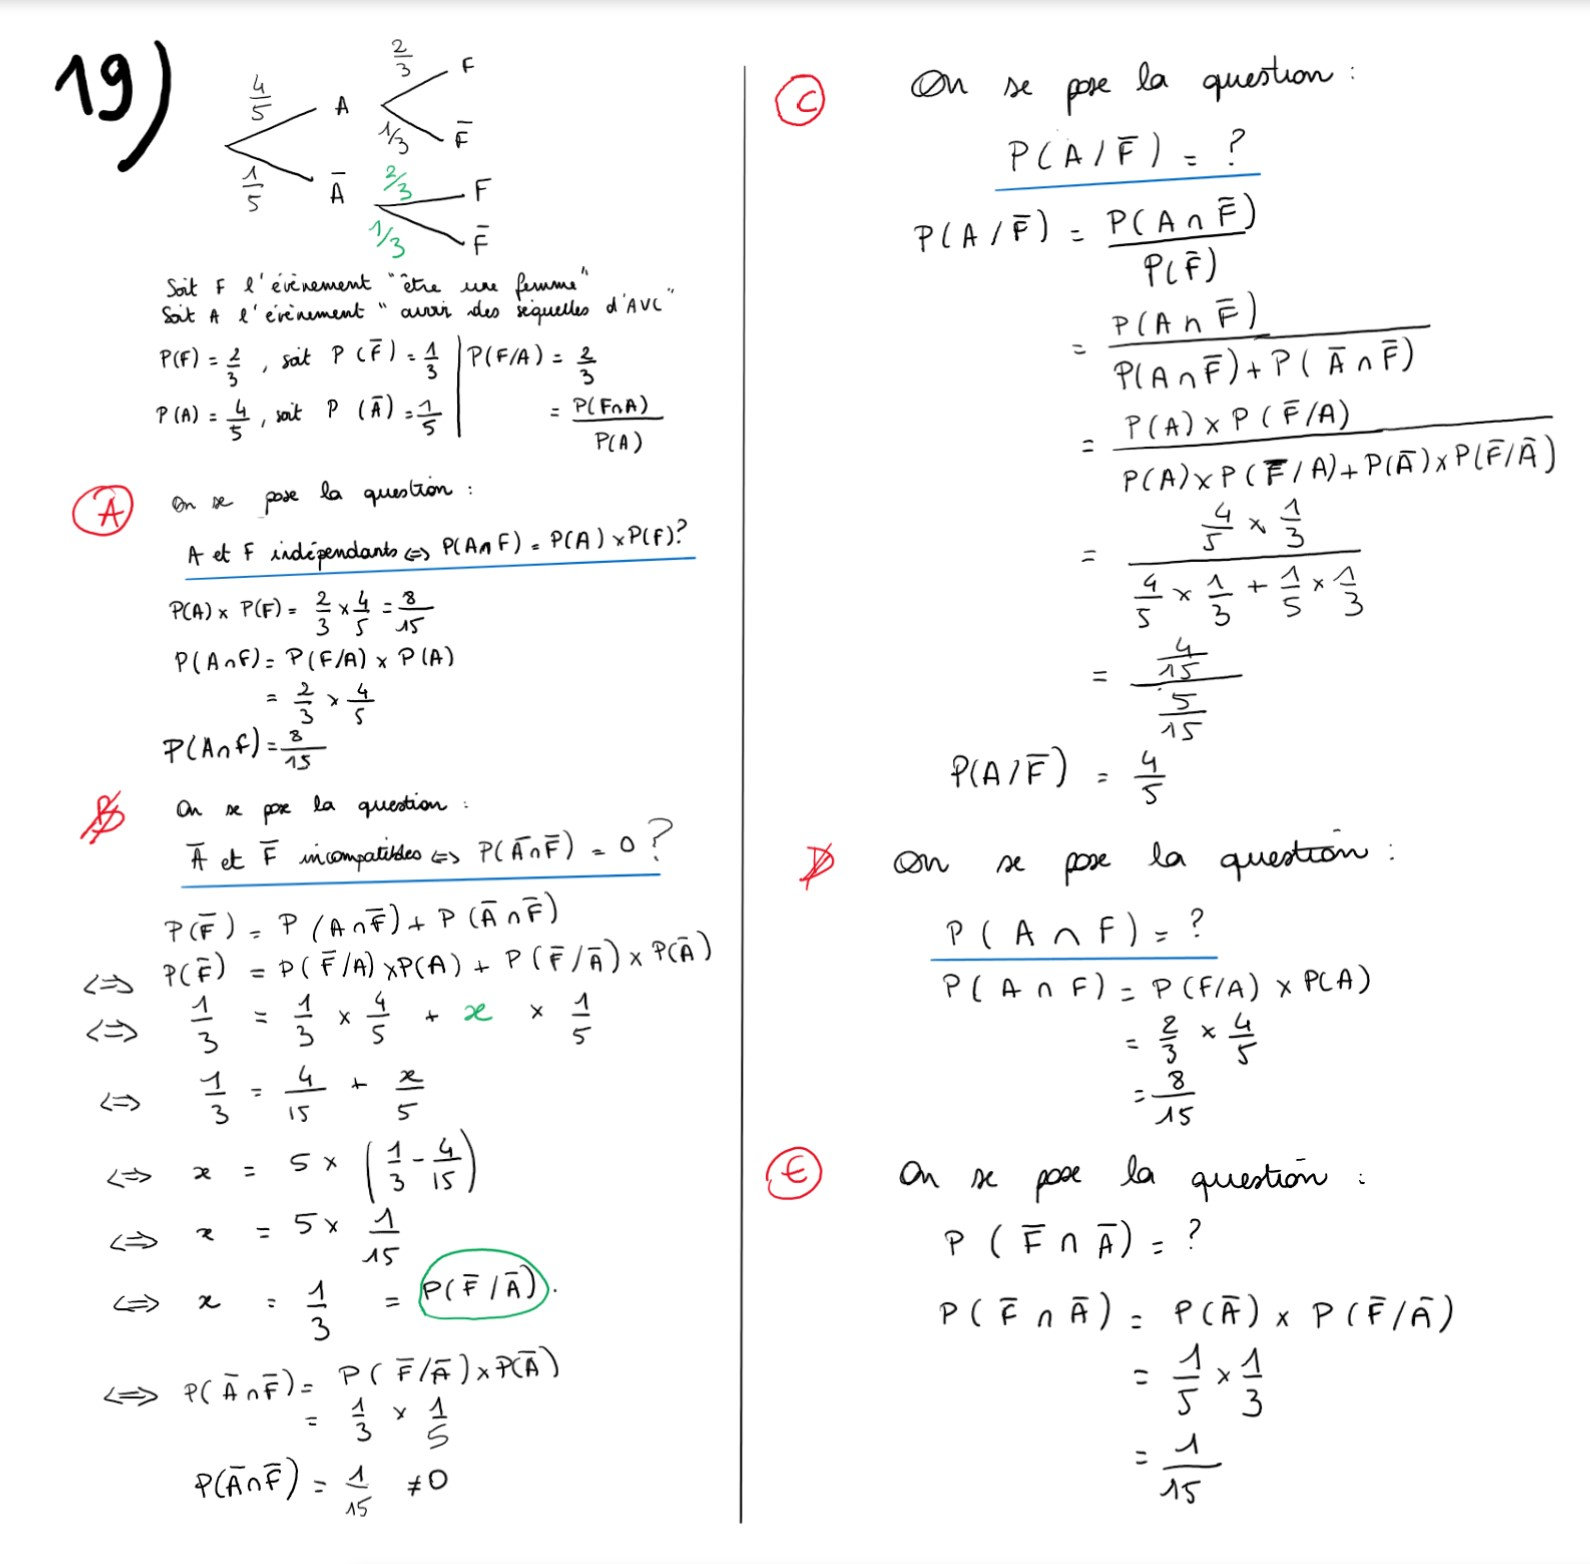 19)
4/5 A 2/3 F
1/3 F̄
1/5 Ā 2/3 F
1/3 F̄
Soit F l'évènement "être une femme"
Soit A l'évènement "avoir des séquelles d'AVC"
P(F) = 2/3, soit P(F̄) = 1/3 | P(F/A) = 2/3
P(A) = 4/5, soit P(Ā) = 1/5 | = P(F∩A)/P(A)
A On se pose la question :
A et F indépendants ⇔ P(A∩F) = P(A) × P(F)?
P(A) × P(F) = 2/3 × 4/5 = 8/15
P(A∩F) = P(F/A) × P(A)
= 2/3 × 4/5
P(A∩F) = 8/15
B On se pose la question :
Ā et F̄ incompatibles ⇔ P(Ā∩F̄) = 0 ?
P(F̄) = P(A∩F̄) + P(Ā∩F̄)
⇔ P(F̄) = P(F̄/A) × P(A) + P(F̄/Ā) × P(Ā)
⇔ 1/3 = 1/3 × 4/5 + x × 1/5
⇔ 1/3 = 4/15 + x/5
⇔ x = 5 × (1/3 - 4/15)
⇔ x = 5 × 1/15
⇔ x = 1/3 = P(F̄/Ā).
⇔ P(Ā∩F̄) = P(F̄/Ā) × P(Ā)
= 1/3 × 1/5
P(Ā∩F̄) = 1/15 ≠ 0
C On se pose la question :
P(A/F̄) = ?
P(A/F̄) = P(A∩F̄)/P(F̄)
= P(A∩F̄)/(P(A∩F̄) + P(Ā∩F̄))
= (P(A) × P(F̄/A))/(P(A) × P(F̄/A) + P(Ā) × P(F̄/Ā))
= (4/5 × 1/3)/(4/5 × 1/3 + 1/5 × 1/3)
= (4/15)/(5/15)
P(A/F̄) = 4/5
D On se pose la question :
P(A∩F) = ?
P(A∩F) = P(F/A) × P(A)
= 2/3 × 4/5
= 8/15
E On se pose la question :
P(F̄∩Ā) = ?
P(F̄∩Ā) = P(Ā) × P(F̄/Ā)
= 1/5 × 1/3
= 1/15